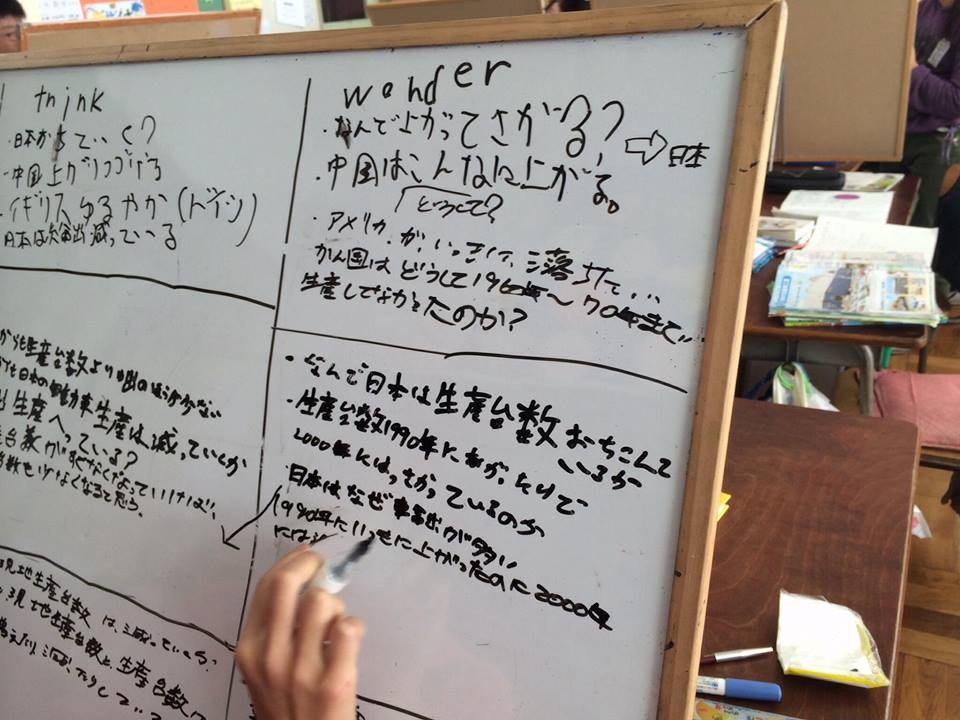 I think
・日本がおちていく?
・中国上がりつづける
・イギリスゆるやか(ドイツ)
日本は輸出減っている
wonder
・なんで上がってさがる?
⇨日本
・中国はこんなに上がる。
どうして?
・アメリカが、いっきに落ちた…
かん国はどうして1960年〜70年まで…
生産してなかったのか?
生産台数より
日本の自動車生産は減っていくか
生産へっている?
台数がすくなくなっていけば、
台数も少なくなると思う。
・なんで日本は生産台数おちこんで
いるか
・生産台数1990年にあがったけど
2000年にはさがっているのか
・日本はなぜ車輸出が多い
1990年にいっきに上がったのに2000年
には
現地生産台数は、減っていくか?
現地生産台数と、生産台数
減ったりして